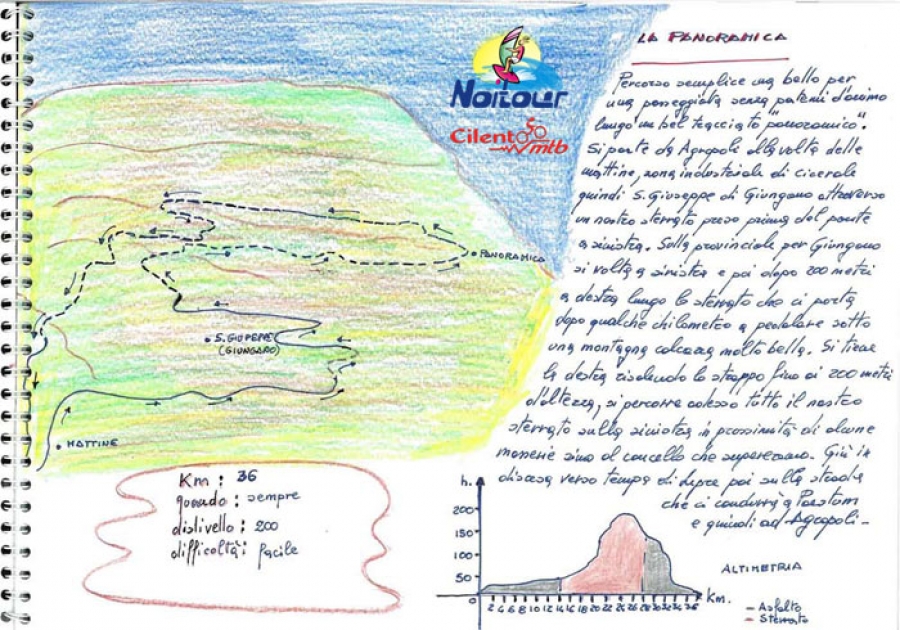 LA PANORAMICA
Noitour
Cilento
mtb
Percorso semplice ma bello per
una passeggiata senza patemi d'animo
lungo un bel tracciato "panoramico".
Si parte da Agropoli alla volta delle
mattine, zona industriale di cicerale
quindi S. Giuseppe di Giungano attraverso
un nostro sterrato preso prima del ponte
a sinistra. Sulla provinciale per Giungano
si volta a sinistra e poi dopo 200 metri
a destra lungo lo sterrato che ci porta
dopo qualche chilometro a pedalare sotto
una montagna calcarea molto bella. Si tiene
la destra risalendo lo strappo fino ai 200 metri
d'altezza, si percorre adesso tutto il nostro
sterrato sulla sinistra in prossimità di alcune
sino al cancello che supereremo. Giù in
discesa verso tempa di Lepre poi sulla strada
che ci condurrà a Paestum
e quindi ad Agropoli-
PANORAMICA
S. GIUPEPPE
(GIUNGANO)
MATTINE
Km : 36
quando : sempre
dislivello : 200
difficoltà : facile
h.
200
150
100
50
0
2 4 6 8 10 12 14 16 18 20 22 24 26 28 30 32 34 36
Km.
ALTIMETRIA
Asfalto
Sterrato